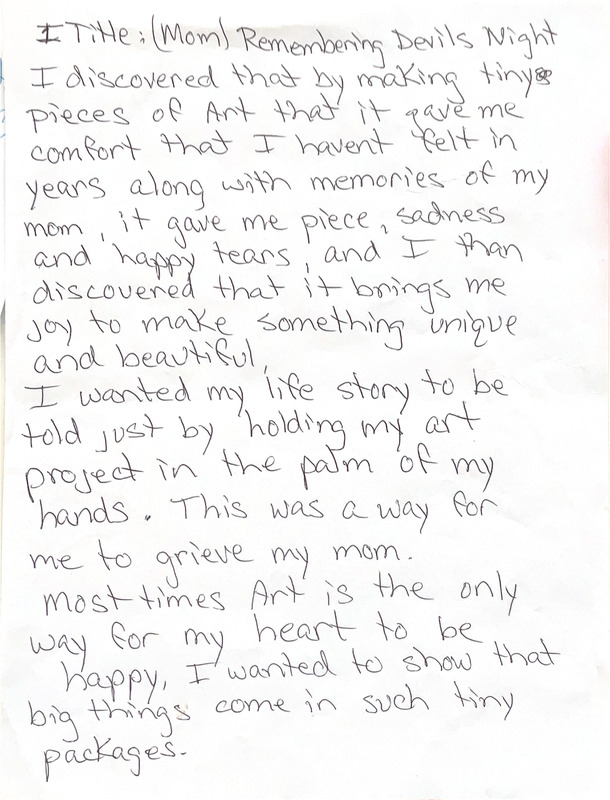 I Title: (Mom) Remembering Devils Night
I discovered that by making tiny
pieces of Art that it gave me
comfort that I havent felt in
years along with memories of my
mom, it gave me piece, sadness
and happy tears, and I than
discovered that it brings me
joy to make something unique
and beautiful,
I wanted my life story to be
told just by holding my art
project in the palm of my
hands. This was a way for
me to grieve my mom.
most times Art is the only
way for my heart to be
happy, I wanted to show that
big things come in such tiny
packages.